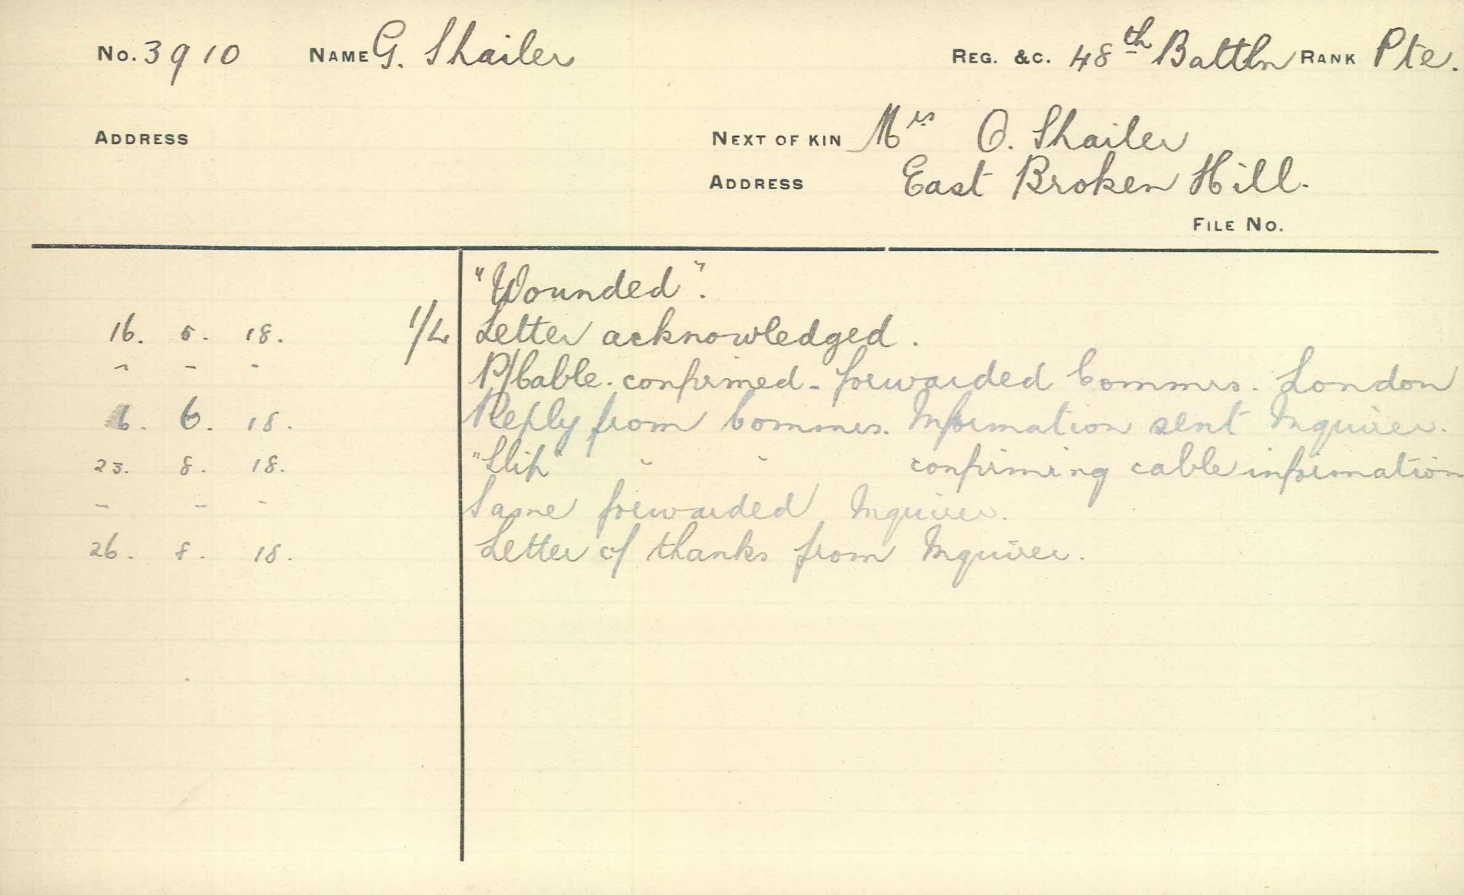 No. 3910 NAME G. Shailer REG. &C. 48th Battln RANK Pte.
ADDRESS NEXT OF KIN Mrs O. Shailer
ADDRESS East Broken Hill.
FILE No.
"Wounded".
16. 5. 18. 1/L Letter acknowledged.
" - - P/Cable. confirmed - forwarded Commrs. London
6. 6. 18. Reply from Commrs. Information sent Inquirer.
23. 8. 18. "Slip" " " confirming cable information
- - - Same forwarded Inquirer.
26. 8. 18. Letter of thanks from Inquirer.